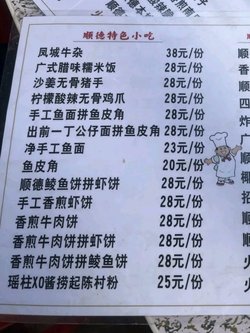 顺德特色小吃
凤城牛杂 38元/份
广式腊味糯米饭 28元/份
沙姜无骨猪手 28元/份
柠檬酸辣无骨鸡爪 28元/份
手工鱼面拼鱼皮角 28元/份
出前一丁公仔面拼鱼皮角 28元/份
净手工鱼面 23元/份
鱼皮角 20元/份
顺德鲮鱼饼拼虾饼 28元/份
手工香煎虾饼 28元/份
香煎牛肉饼 28元/份
香煎牛肉饼拼虾饼 28元/份
香煎牛肉饼拼鲮鱼饼 28元/份
瑶柱XO酱捞起陈村粉 25元/份